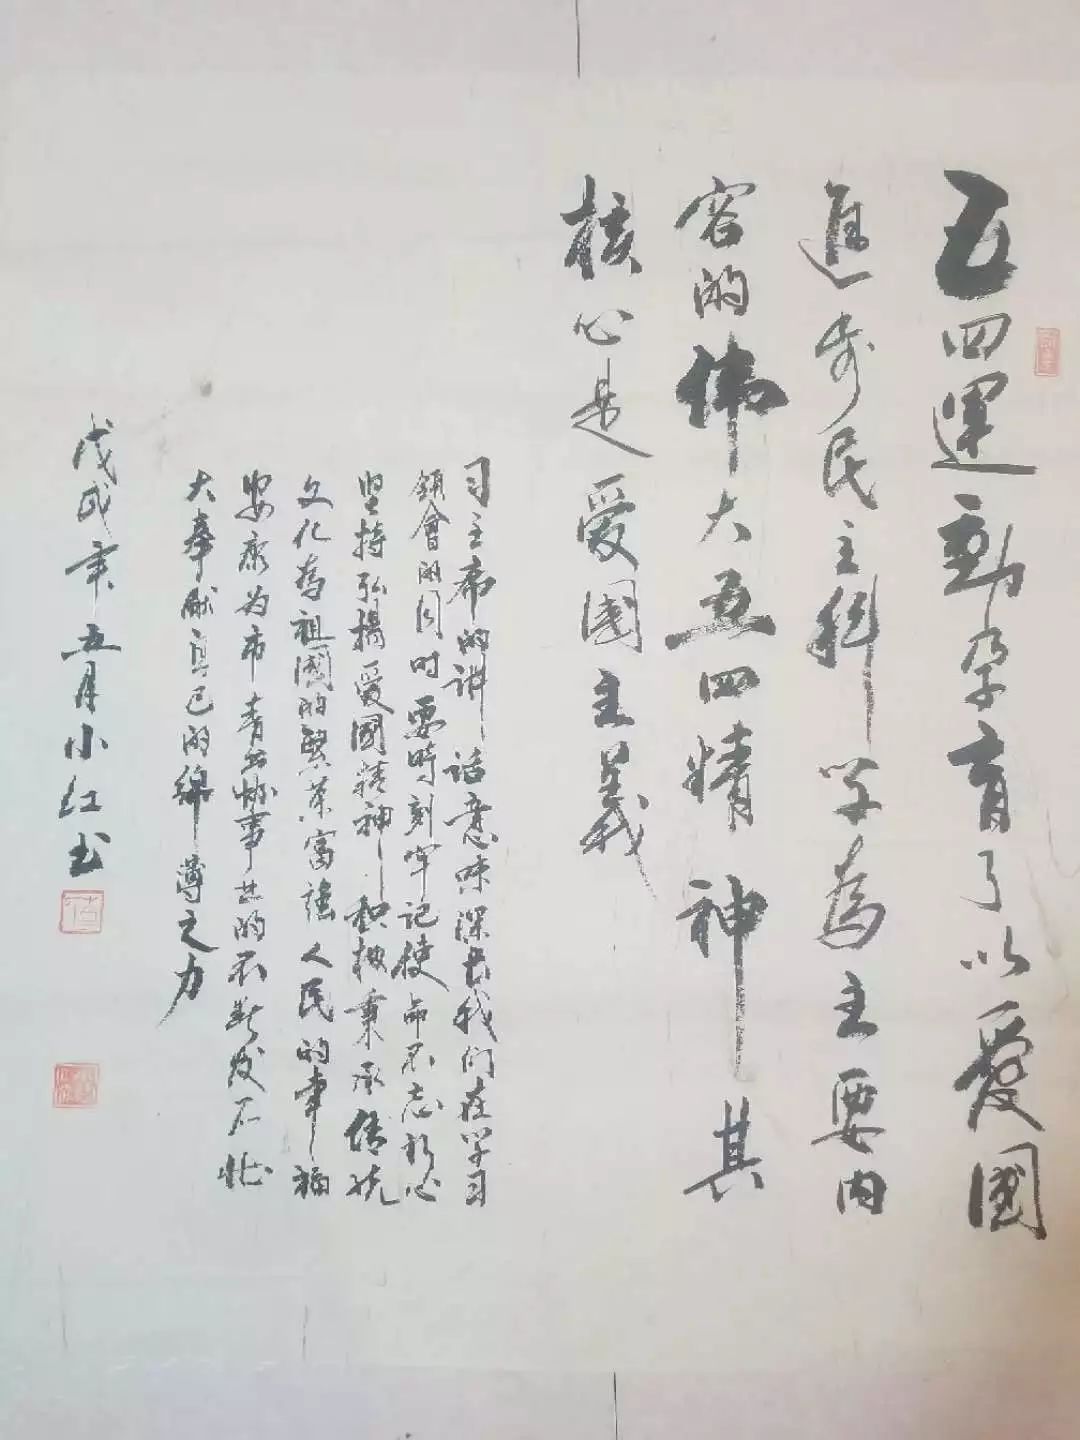 五四運動孕育了以愛國
進步民主科学為主要内
容的偉大五四精神其
核心是愛國主義
习主席的讲话意味深长我们在学习
領會的同时要時刻牢记使命不忘初心
坚持弘揚愛國精神积极秉承传统
文化為祖國的繁荣富强人民的幸福
安康为市青书协事业的不断发展壮
大奉献自己的綿薄之力
戊戌年五月小红书